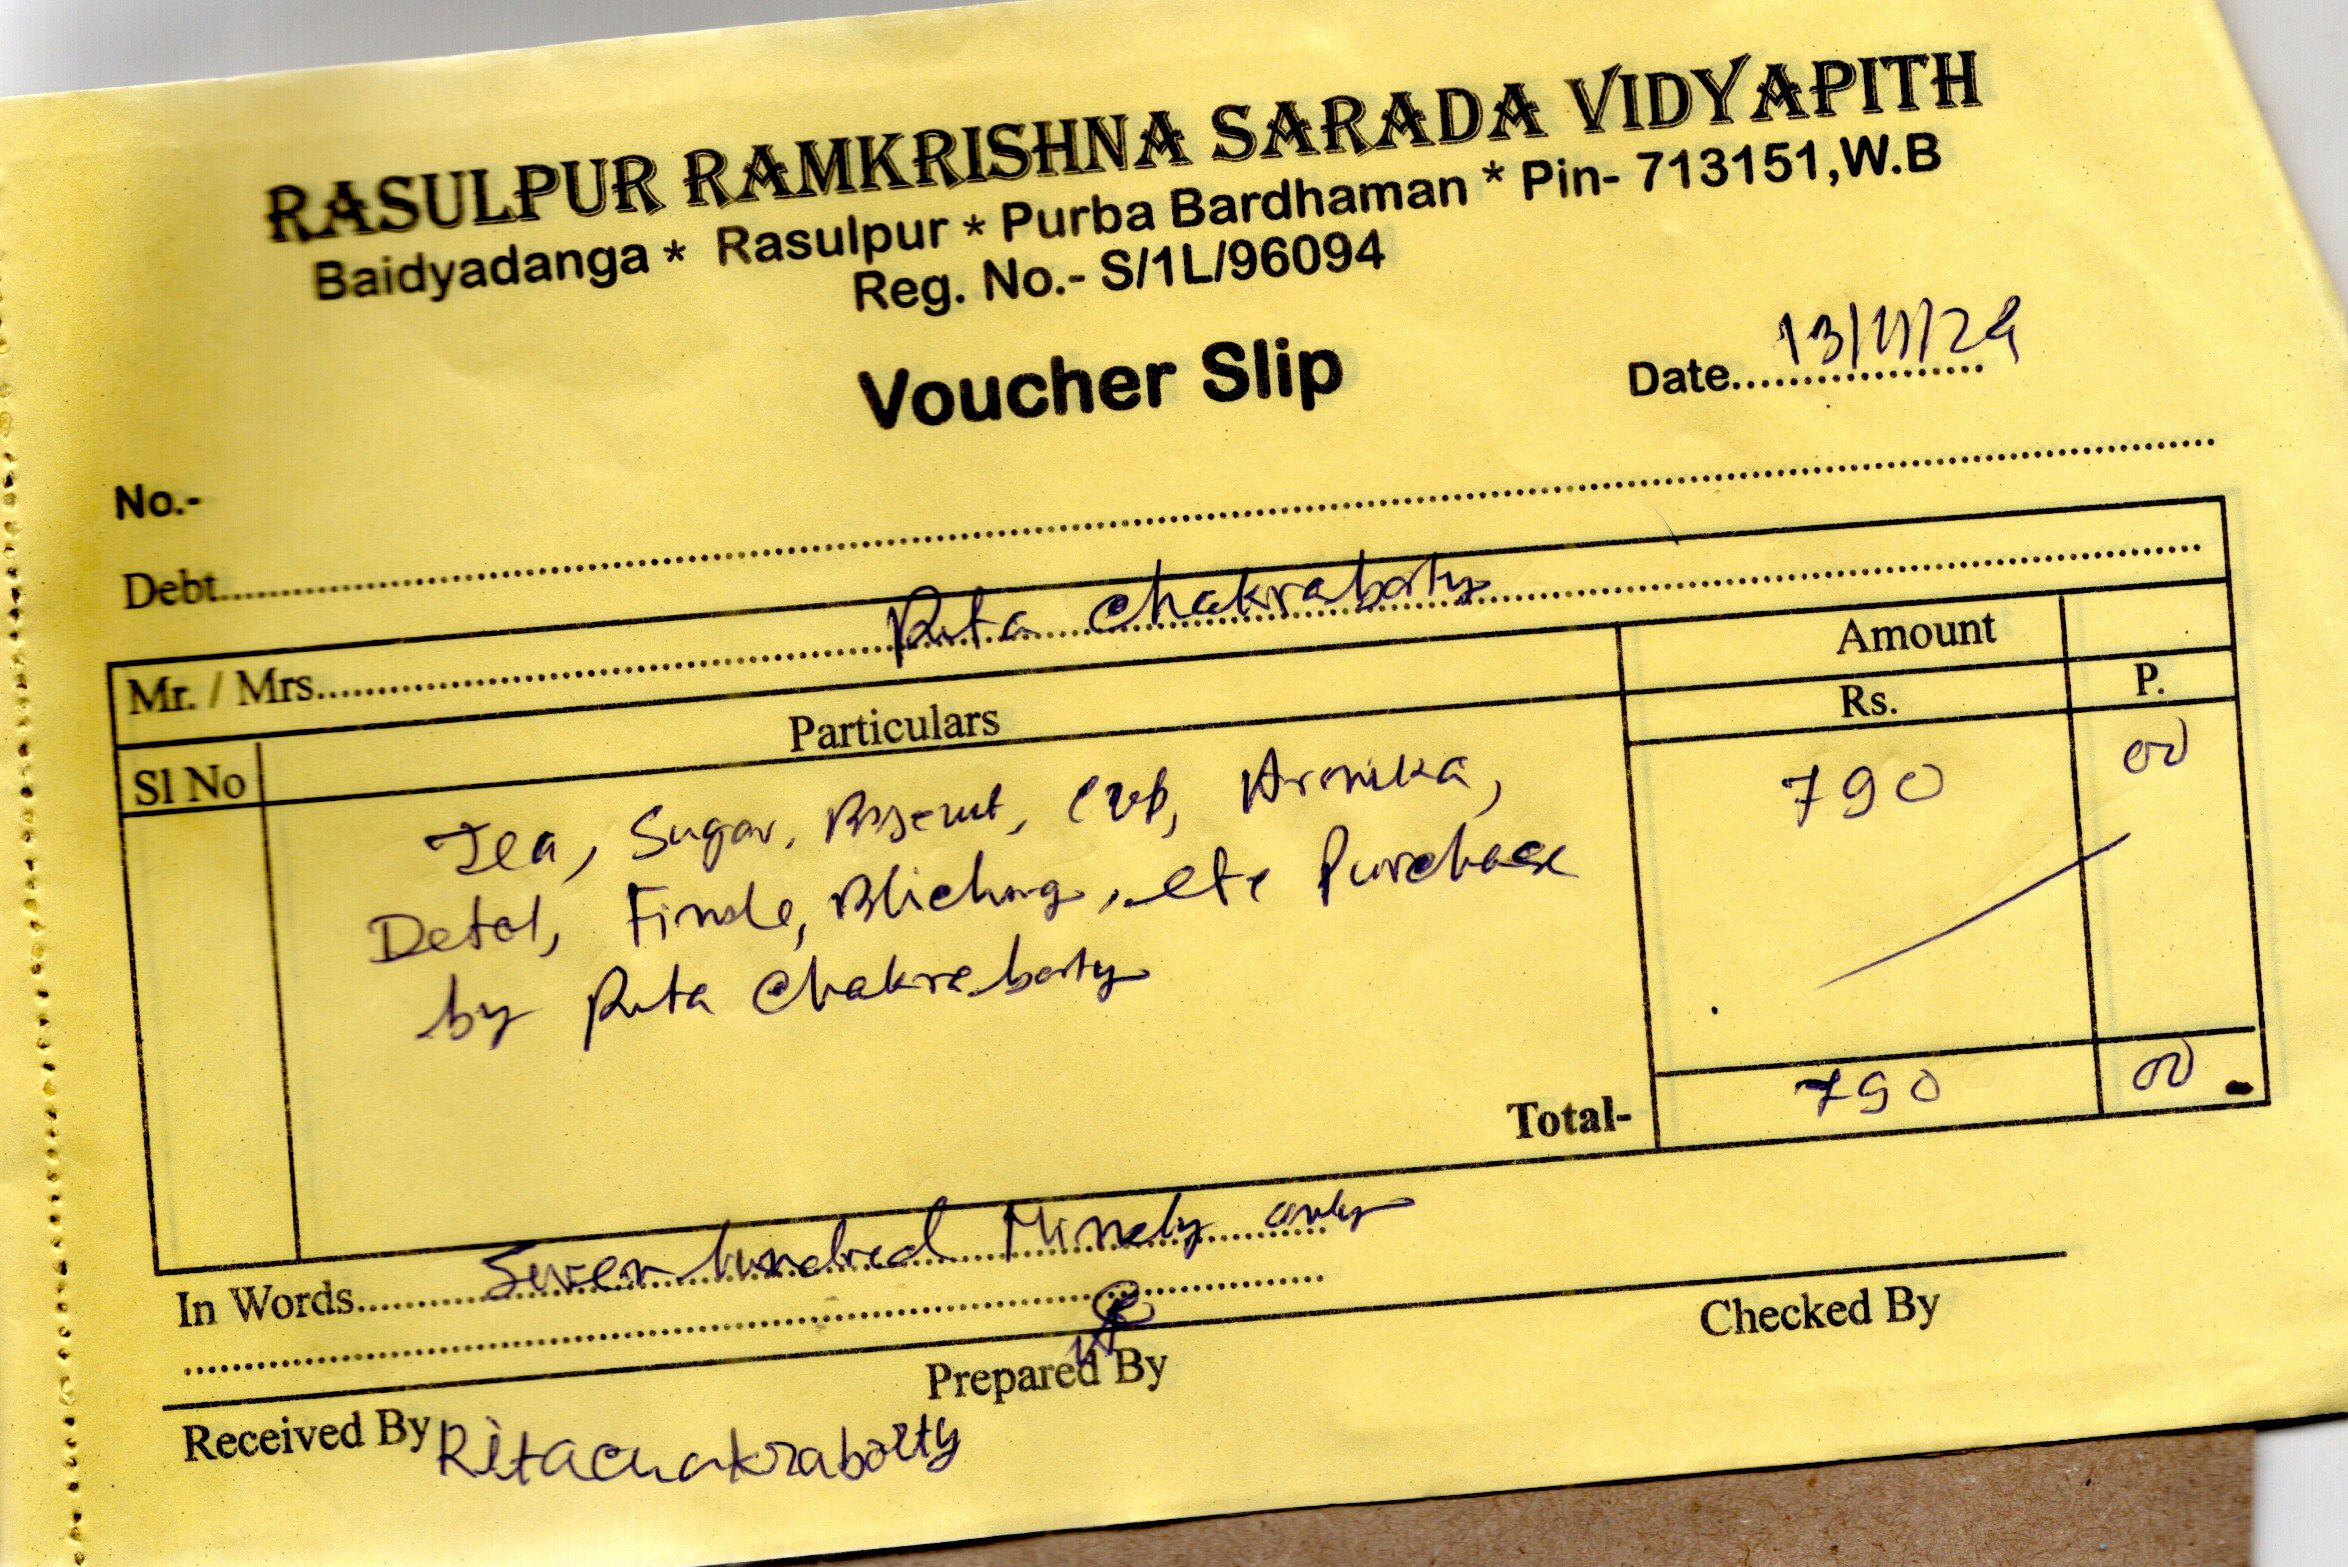 RASULPUR RAMKRISHNA SARADA VIDYAPITH
Baidyadanga * Rasulpur * Purba Bardhaman * Pin- 713151,W.B
Reg. No.- S/1L/96094
Voucher Slip
Date..................13/11/24
No.-
Debt
Mr. / Mrs. Rita Chakraborty
Sl No Particulars Amount
Rs. P.
Tea, Sugar, Cup, 790 00
Detol, etc Purchase
by Rita Chakraborty
Total- 790 00
In Words Seven hundred Ninety only
Prepared By
Checked By
Received By Rita Chakraborty